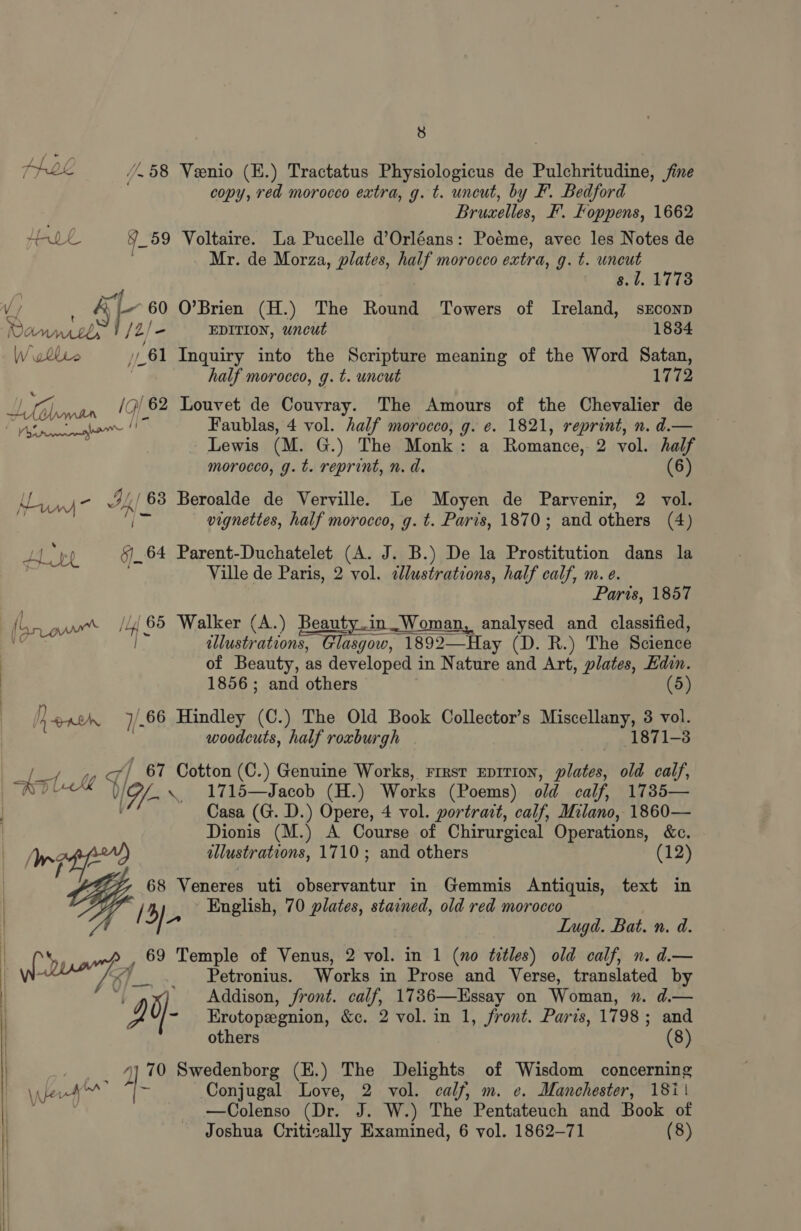 8
Hall //_58 Vænio (E.) Tractatus Physiologicus de Pulchritudine, fine
copy, red morocco extra, g. t. uncut, by F. Bedford
Bruxelles, F. Foppens, 1662
Hall 8_59 Voltaire. La Pucelle d’Orléans: Poéme, avec les Notes de
Mr. de Morza, plates, half morocco extra, g. t. uncut
s. l. 1773
60 O’Brien (H.) The Round Towers of Ireland, SECOND
/2/- EDITION, uncut 1834
61 Inquiry into the Scripture meaning of the Word Satan,
half morocco, g. t. uncut 1772
62 Louvet de Couvray. The Amours of the Chevalier de
Faublas, 4 vol. half morocco, g. e. 1821, reprint, n. d.—
Lewis (M. G.) The Monk: a Romance, 2 vol. half
morocco, g. t. reprint, n. d. (6)
63 Beroalde de Verville. Le Moyen de Parvenir, 2 vol.
vignettes, half morocco, g. t. Paris, 1870; and others (4)
64 Parent-Duchatelet (A. J. B.) De la Prostitution dans la
Ville de Paris, 2 vol. illustrations, half calf, m. e.
Paris, 1857
65 Walker (A.) Beauty in Woman, analysed and classified,
illustrations, Glasgow, 1892—Hay (D. R.) The Science
of Beauty, as developed in Nature and Art, plates, Edin.
1856; and others (5)
66 Hindley (C.) The Old Book Collector’s Miscellany, 3 vol.
woodcuts, half roxburgh 1871-3
67 Cotton (C.) Genuine Works, FIRST EDITION, plates, old calf,
1715—Jacob (H.) Works (Poems) old calf, 1735—
Casa (G. D.) Opere, 4 vol. portrait, calf, Milano, 1860—
Dionis (M.) A Course of Chirurgical Operations, &c.
illustrations, 1710; and others (12)
68 Veneres uti observantur in Gemmis Antiquis, text in
English, 70 plates, stained, old red morocco
Lugd. Bat. n. d.
69 Temple of Venus, 2 vol. in 1 (no titles) old calf, n. d.—
Petronius. Works in Prose and Verse, translated by
Addison, front. calf, 1736—Essay on Woman, n. d.—
Erotopægnion, &c. 2 vol. in 1, front. Paris, 1798; and
others (8)
70 Swedenborg (E.) The Delights of Wisdom concerning
Conjugal Love, 2 vol. calf, m. e. Manchester, 1811
—Colenso (Dr. J. W.) The Pentateuch and Book of
Joshua Critically Examined, 6 vol. 1862-71 (8)